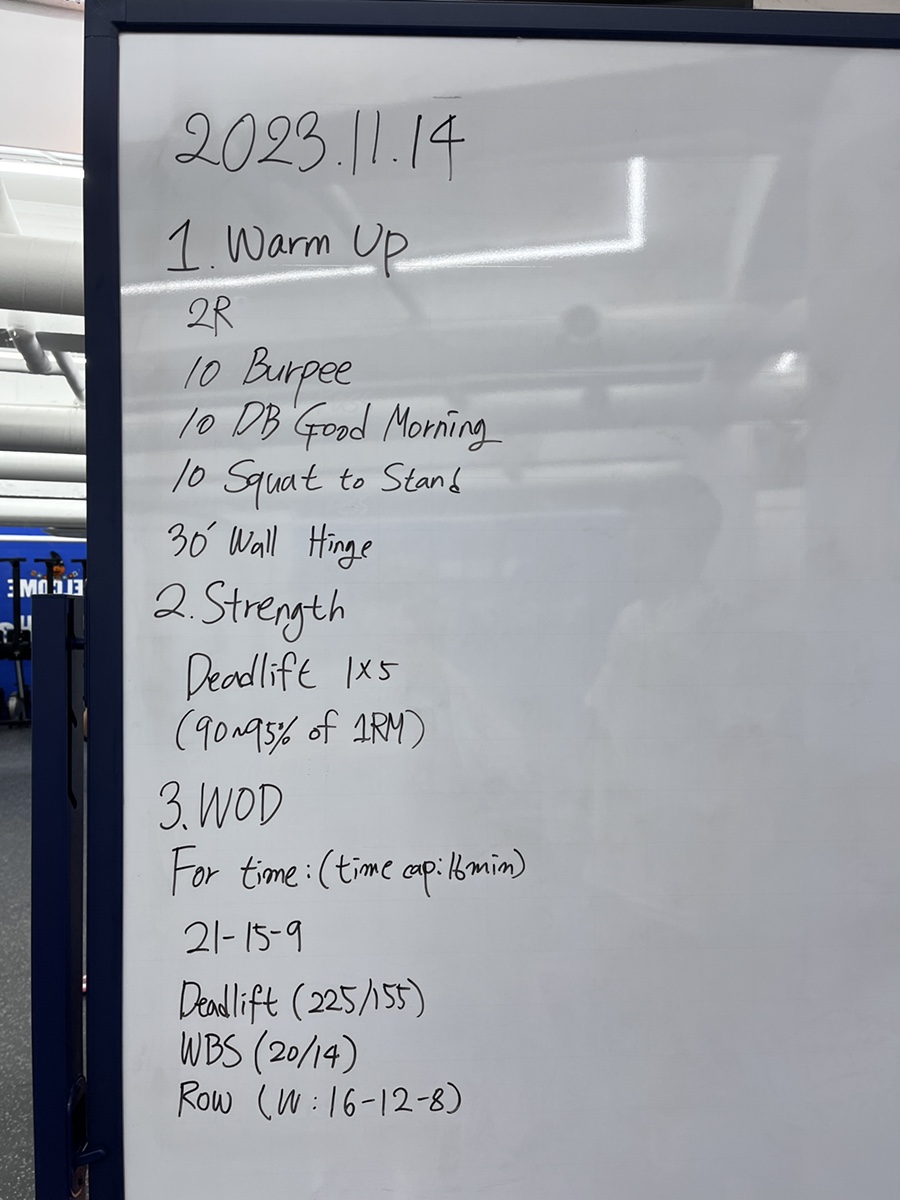 2023.11.14
1. Warm Up
2R
10 Burpee
10 DB Good Morning
10 Squat to Stand
30' Wall Hinge
2. Strength
Deadlift 1x5
(90~95% of 1RM)
3. WOD
For time: (time cap: 16min)
21-15-9
Deadlift (225/155)
WBS (20/14)
Row (W: 16-12-8)
WELCOME